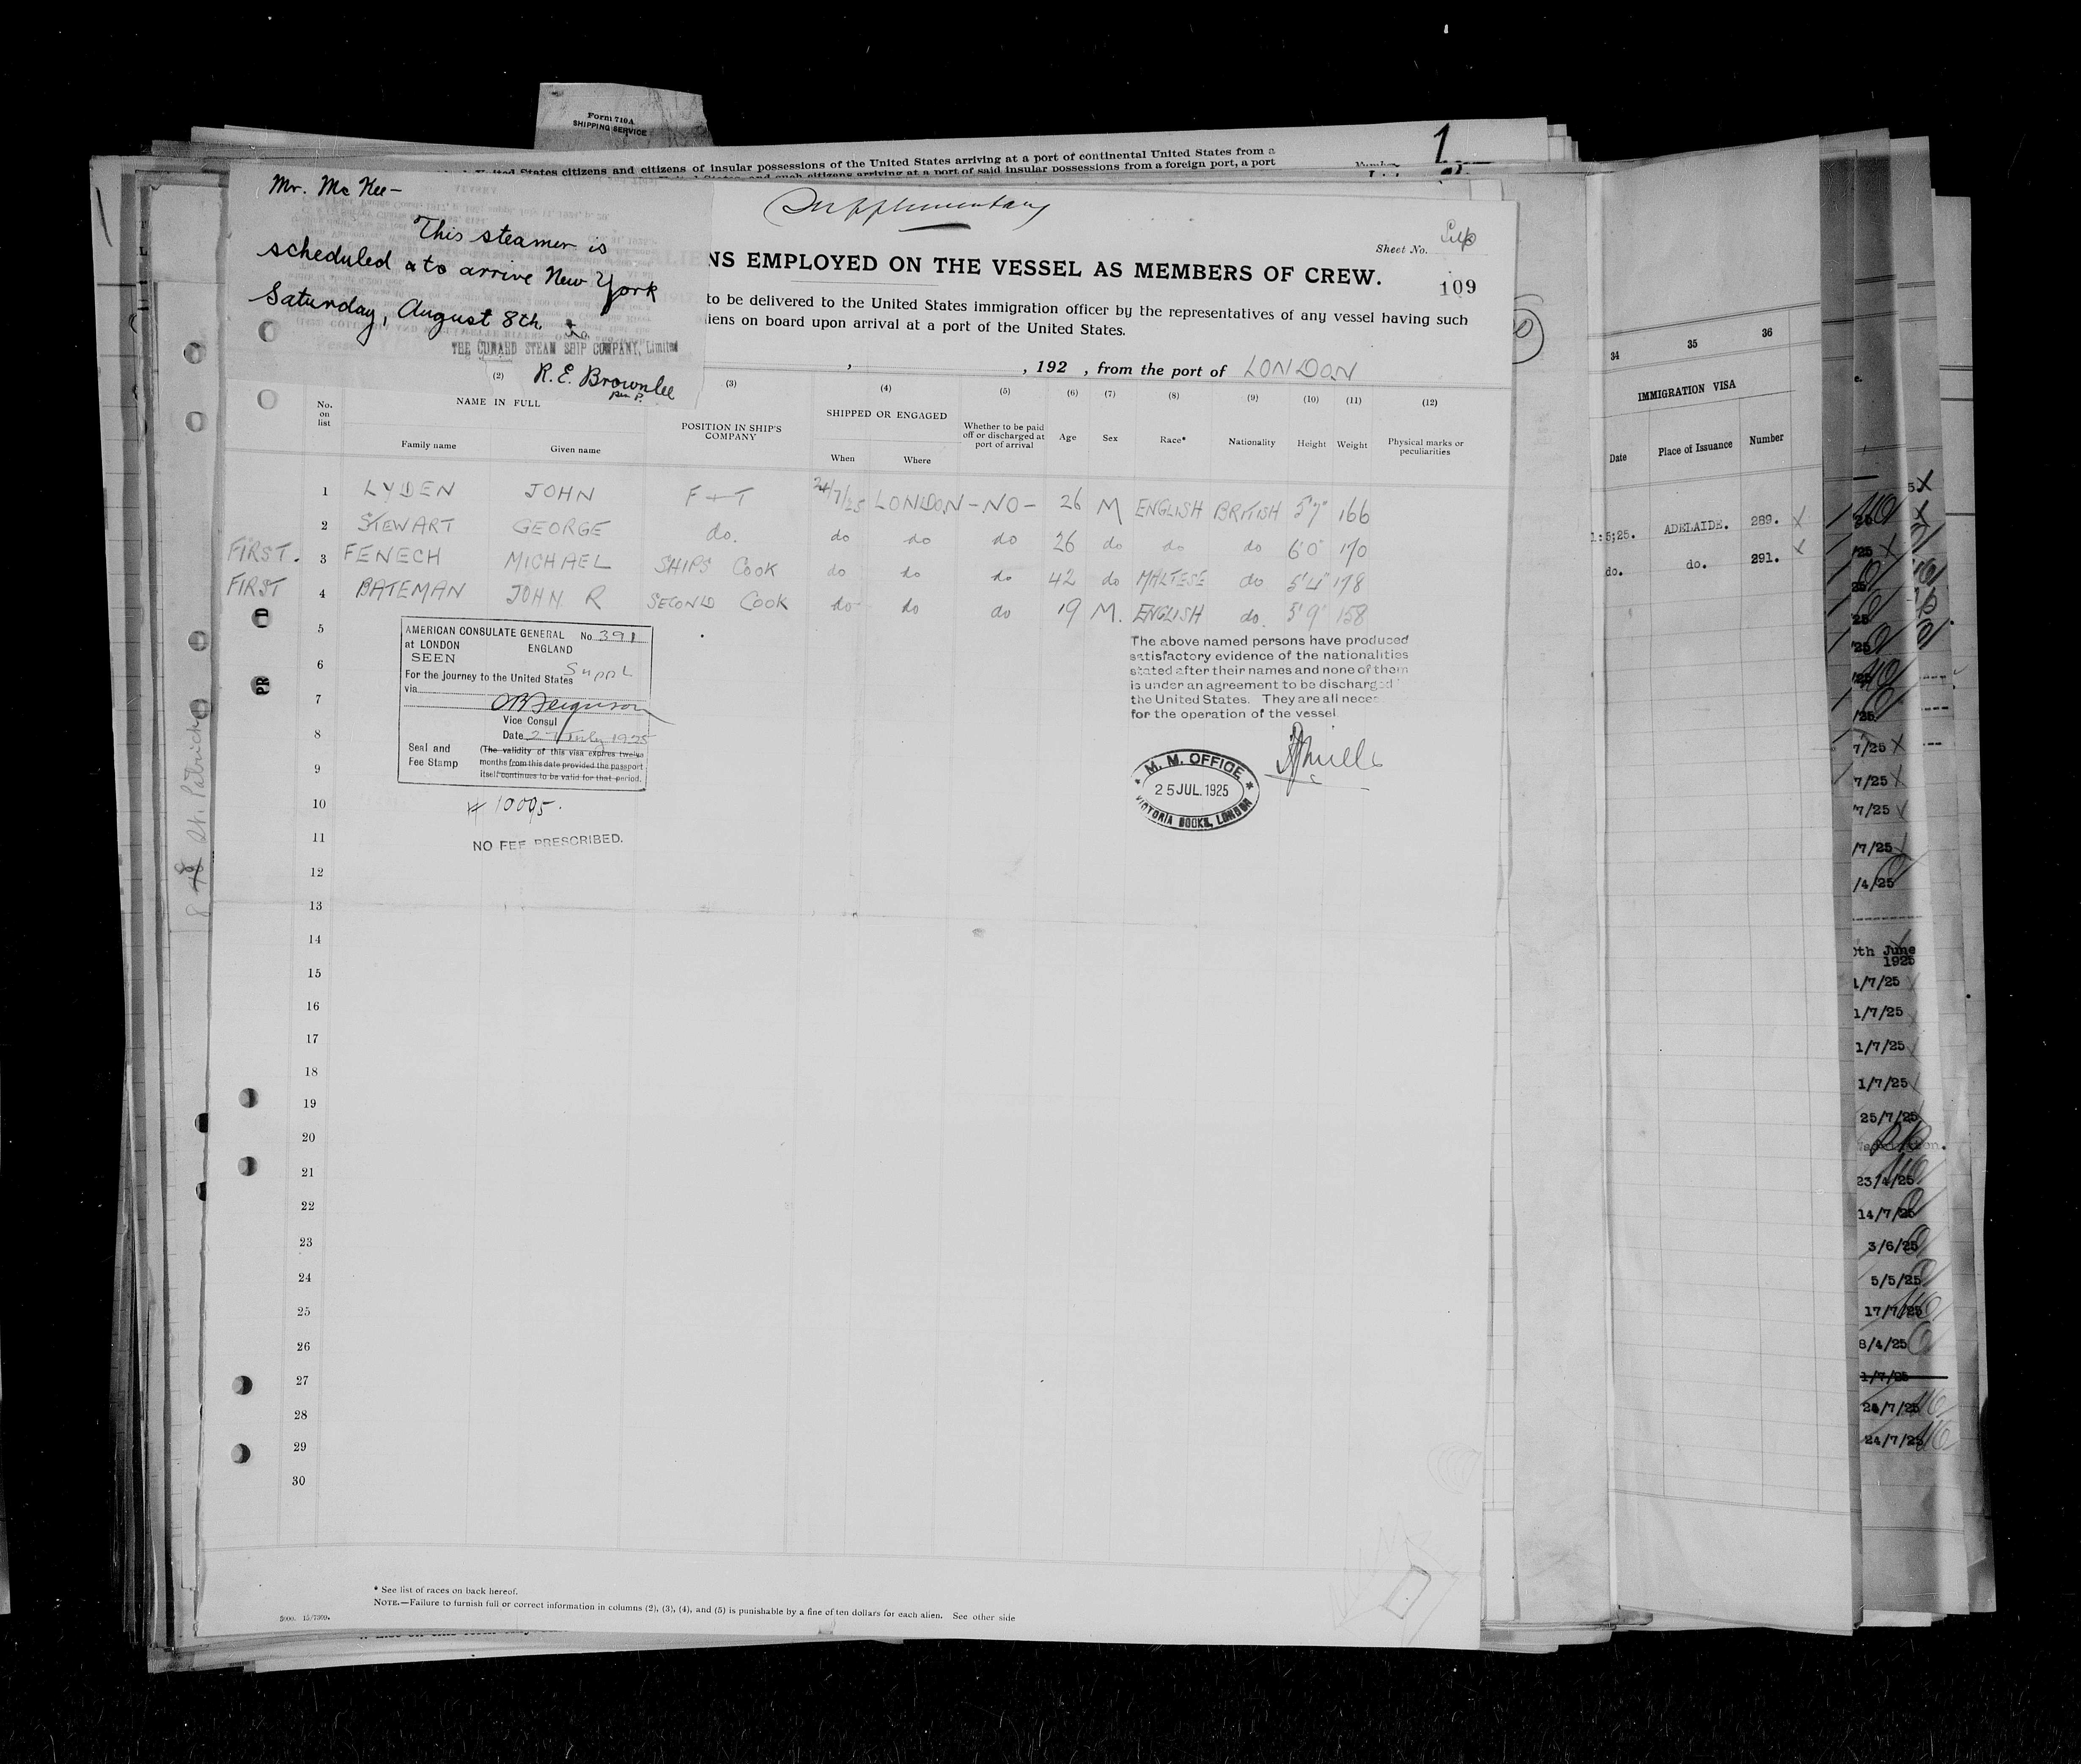 Form 710A
SHIPPING SERVICE
States citizens and citizens of insular possessions of the United States arriving at a port of continental United States from a
and such citizens arriving at a port of said insular possessions from a foreign port, a port
Number
1
Mr. Mc Kee-
This steamer is
scheduled to arrive New York
Saturday, August 8th
THE CUNARD STEAM SHIP COMPANY, Limited
R. E. Brownlee
per P.
Supplementary
Sheet No.
NS EMPLOYED ON THE VESSEL AS MEMBERS OF CREW.
109
to be delivered to the United States immigration officer by the representatives of any vessel having such
liens on board upon arrival at a port of the United States.
, , 192 , from the port of LONDON
(2) (3) (4) (5) (6) (7) (8) (9) (10) (11) (12)
No. on list
NAME IN FULL
Family name Given name
POSITION IN SHIP'S COMPANY
SHIPPED OR ENGAGED
When Where
Whether to be paid off or discharged at port of arrival
Age Sex Race* Nationality Height Weight
Physical marks or peculiarities
1 LYDEN JOHN F + T 24/7/25 LONDON -NO- 26 M ENGLISH BRITISH 5'7" 166
2 STEWART GEORGE do. do do do 26 do do do 6'0" 170
FIRST. 3 FENECH MICHAEL SHIPS COOK do do do 42 do MALTESE do 5'4" 178
FIRST 4 BATEMAN JOHN R SECOND COOK do do do 19 M. ENGLISH do. 5'9" 158
5
6
7
8
9
10
11
12
13
14
15
16
17
18
19
20
21
22
23
24
25
26
27
28
29
30
AMERICAN CONSULATE GENERAL No 391
at LONDON ENGLAND
SEEN
For the journey to the United States Suppl
via
Vice Consul
Date 27 July 1925
Seal and Fee Stamp
(The validity of this visa expires twelve
months from this date provided the passport
itself continues to be valid for that period.
# 10005.
NO FEE PRESCRIBED.
The above named persons have produced
satisfactory evidence of the nationalities
stated after their names and none of them
is under an agreement to be discharged
the United States. They are all neces
for the operation of the vessel
M. M. OFFICE
25 JUL. 1925
VICTORIA DOCKS, LONDON
* See list of races on back hereof.
NOTE.—Failure to furnish full or correct information in columns (2), (3), (4), and (5) is punishable by a fine of ten dollars for each alien. See other side
34 35 36
IMMIGRATION VISA
Date Place of Issuance Number
1:5;25. ADELAIDE. 289. X
do. do. 291. X
7/25 X
7/25 X
7/25
/7/25
/4/25
0th June
1925
1/7/25
1/7/25
1/7/25
1/7/25
25/7/25
23/4/25
14/7/25
3/6/25
5/5/25
17/7/25
8/4/25
1/7/25
24/7/25
24/7/25